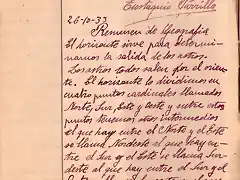 Eustaquio Carrillo
26-10-33
Resumen de Geografía
El horizonte sirve para determi-
narnos la salida de los astros.
Los astros todos salen por el orien-
te. El horizonte lo dividimos en
cuatro puntos cardinales llamados
Norte, Sur, Este y Oeste y entre estos
puntos tenemos otros intermedios
el que hay entre el Norte y el Este
se llama Nordeste al que hay en-
tre el Sur y el Este se llama Sur-
deste al que hay entre el Sur y el